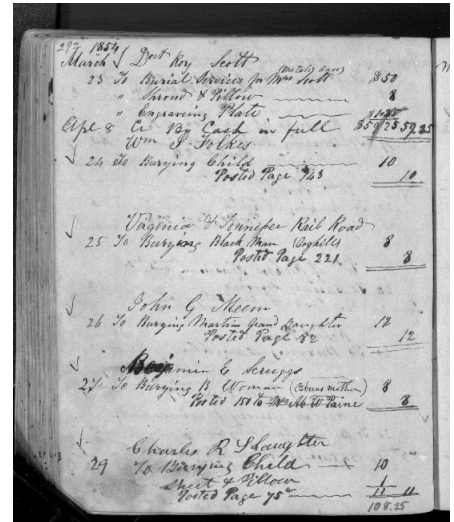 297 1854
March Doct Roy Scott
23 To Burial Services for Mrs Scott (Metalic Case) $50
" Shroud & Pillow 8
" Engraving Plate
Apl 8 Cr By Cash in full $59.25 59.25
Wm J Folkes
24 To Burying Child 10
Posted Page 143 10
Virginia & Tennessee Rail Road
25 To Burying Black Man (Coghill) 8
Posted Page 221 8
John G Meem
26 To Burying Martin Grand Daughter 12
Posted Page 82 12
Benjamin C Scruggs
To Burying B Woman mother) 8
Posted 150 to W Paine 8
Charles R Slaughter
29 To Burying Child 10
Sheet & Pillow 1
Posted Page 75 11 11
108.25